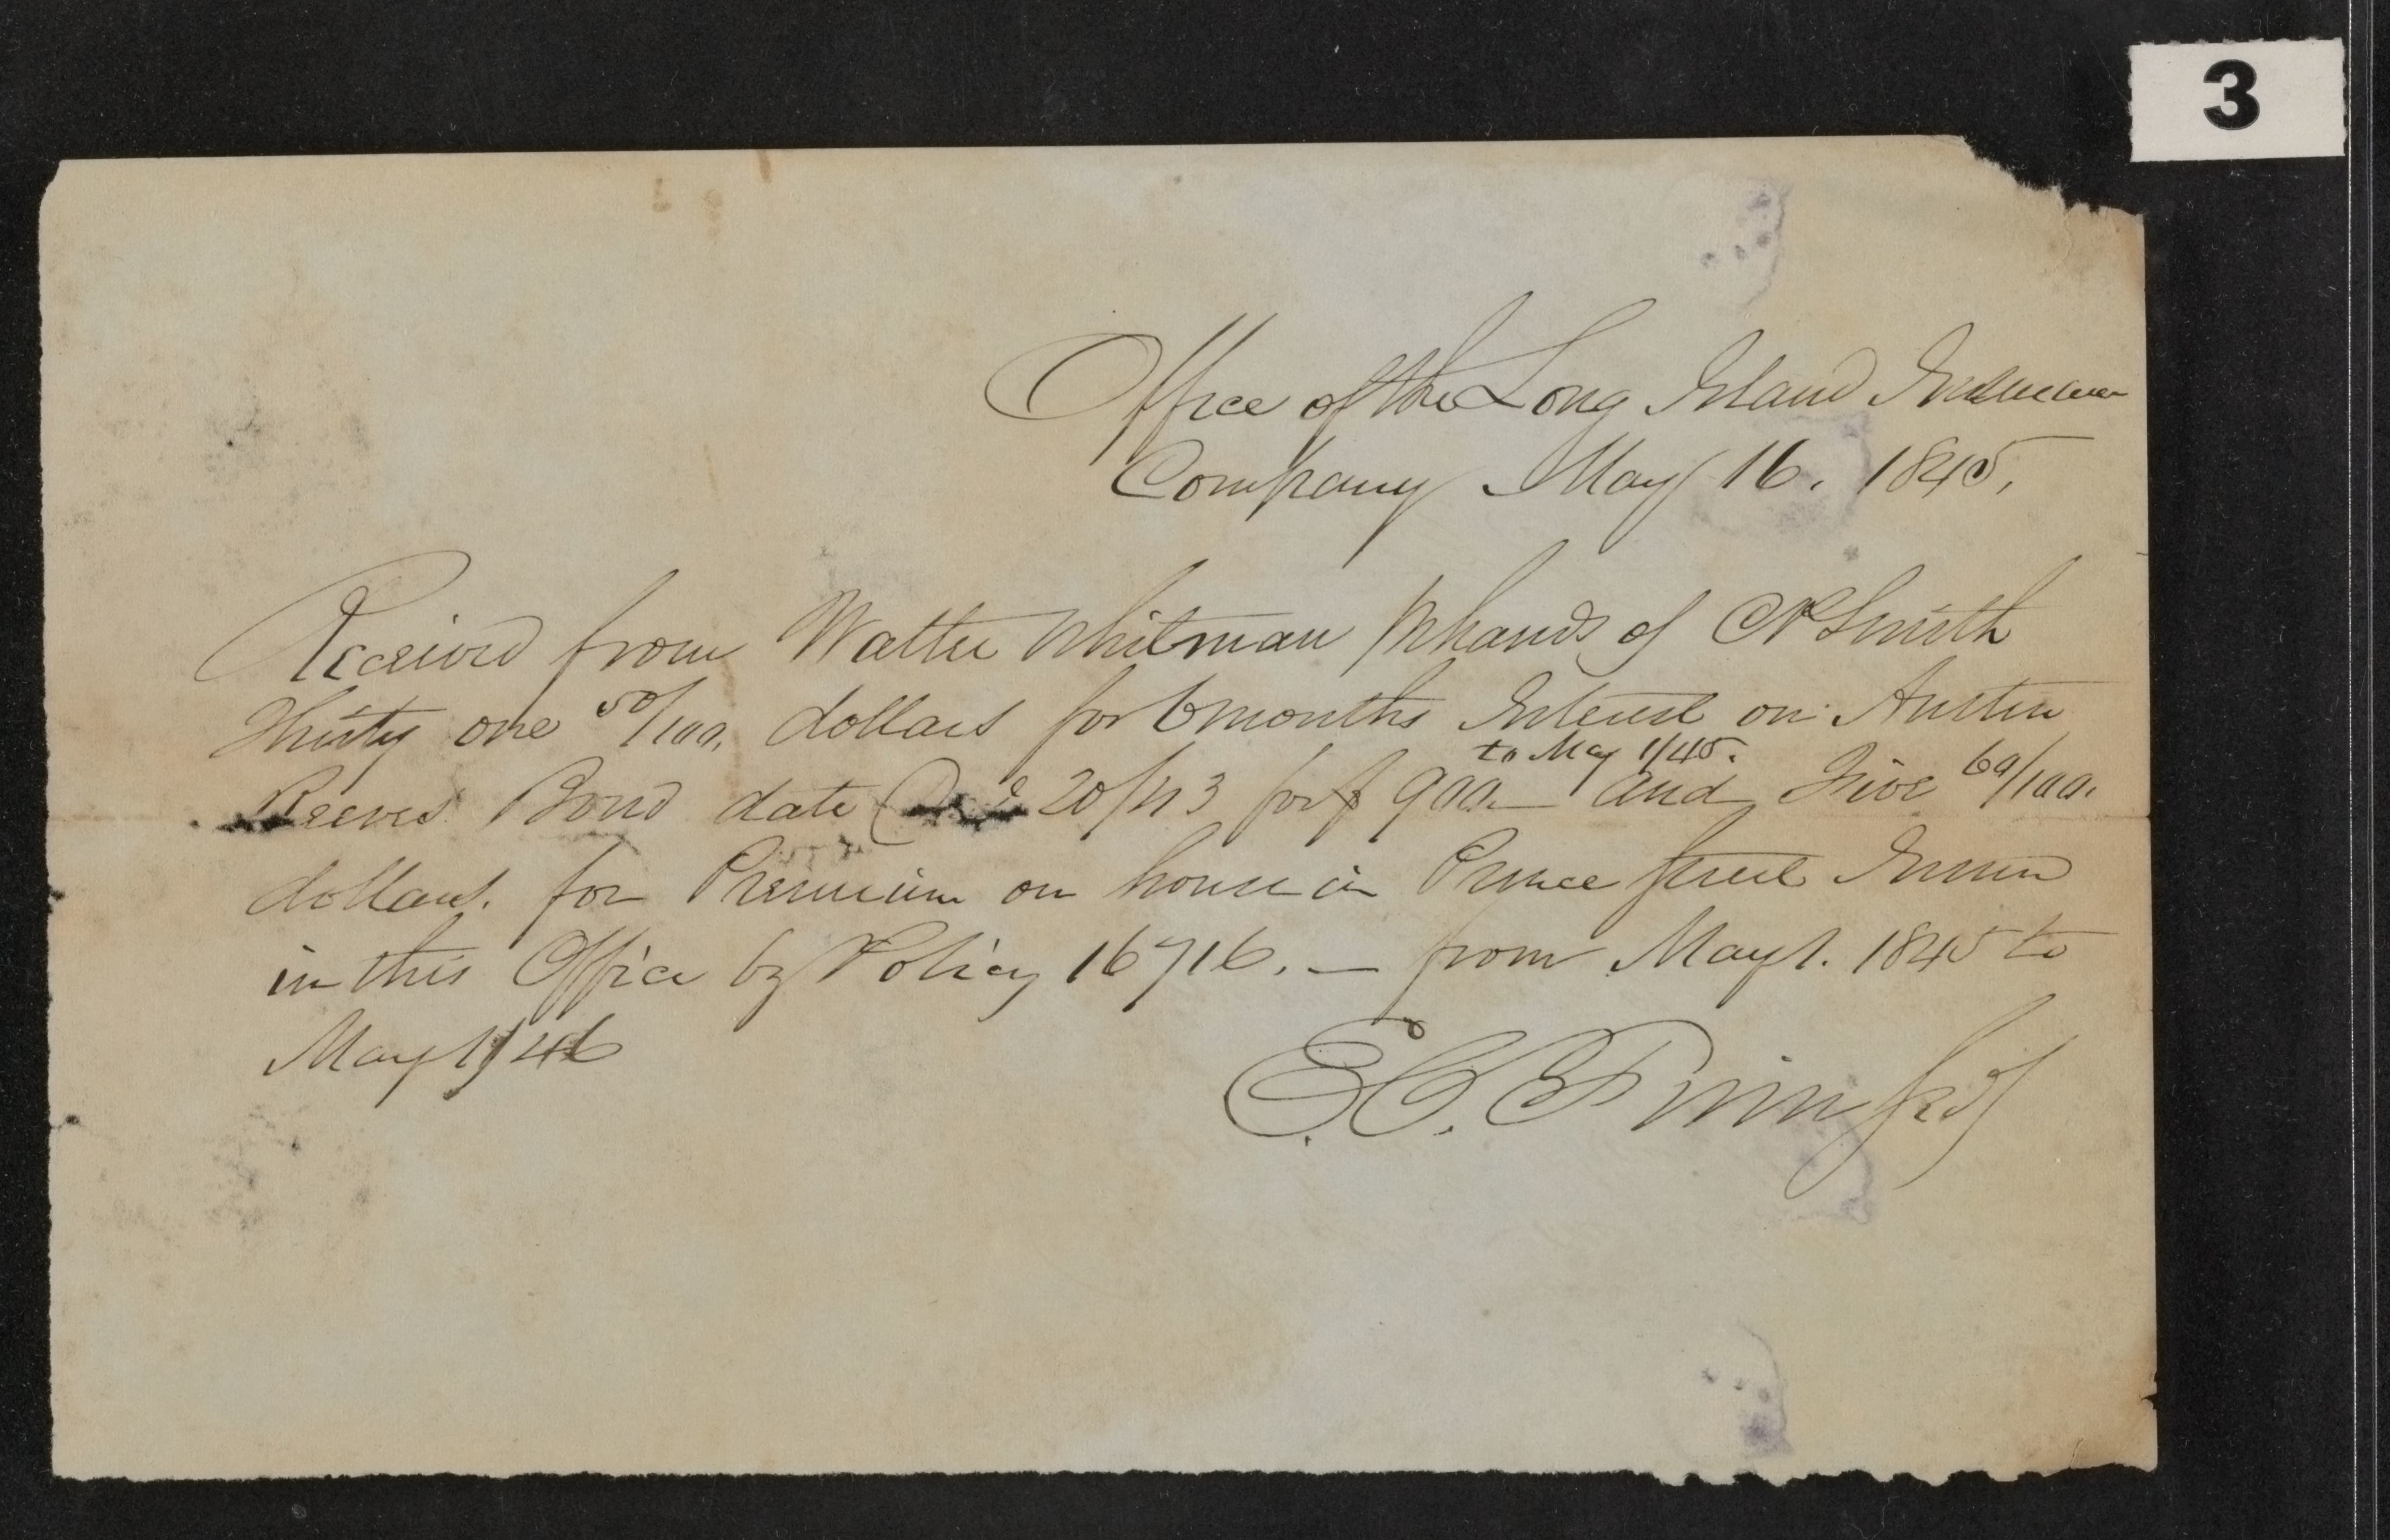 3
Office of the Long Island Insurance
Company May 16. 1845,
Received from Walter Whitman p hands of C P Smith
Thirty one 50/100. dollars for 6 months Interest on Austin
to May 1/45.
Reeves Bond date 20/43 for $900.— and Five 60/100.
dollars. for Premium on house in Prince Street Insured
in this Office by Policy 16716. — from May 1. 1845 to
May 1/46
E. C.